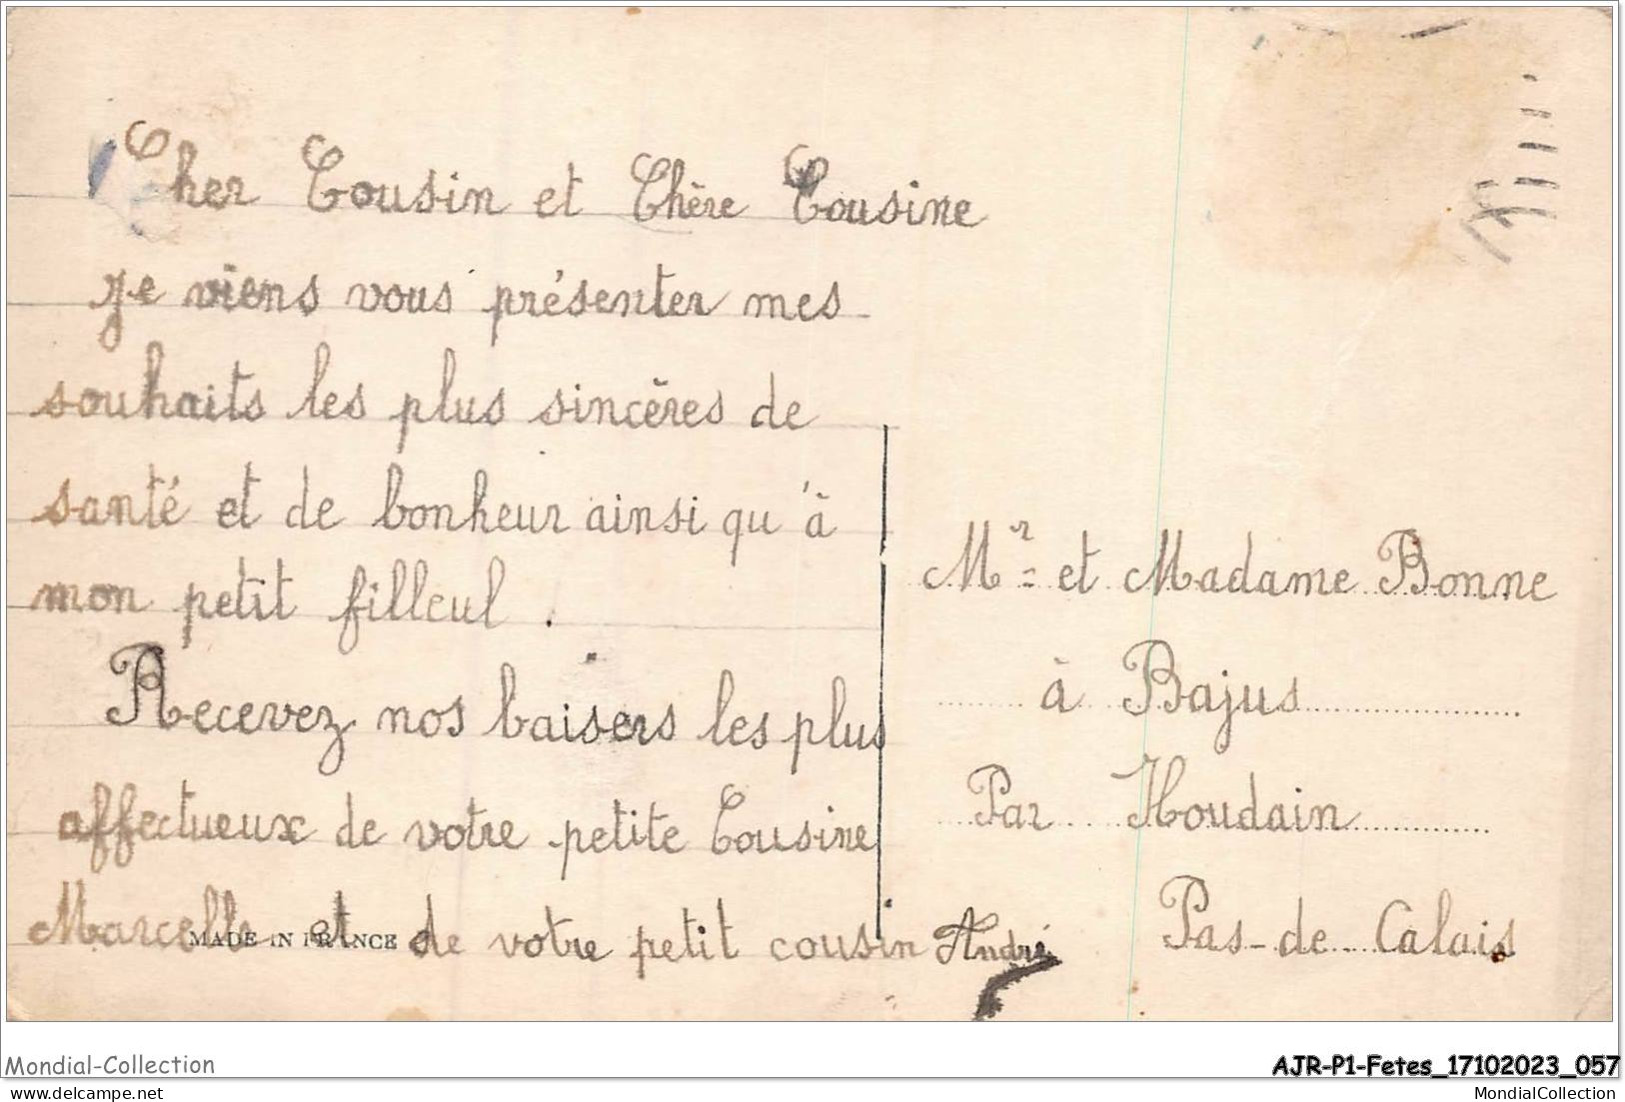 Cher Cousin et Chère Cousine
Je viens vous présenter mes
souhaits les plus sincères de
santé et de bonheur ainsi qu'à
mon petit filleul.
Recevez nos baisers les plus
affectueux de votre petite Cousine
Marcelle et de votre petit cousin André
MADE IN FRANCE
Mr et Madame Bonne
à Bajus
Par Houdain
Pas-de-Calais
Mondial-Collection
AJR-P1-Fetes_17102023_057
https://www.delcampe.net
MondialCollection